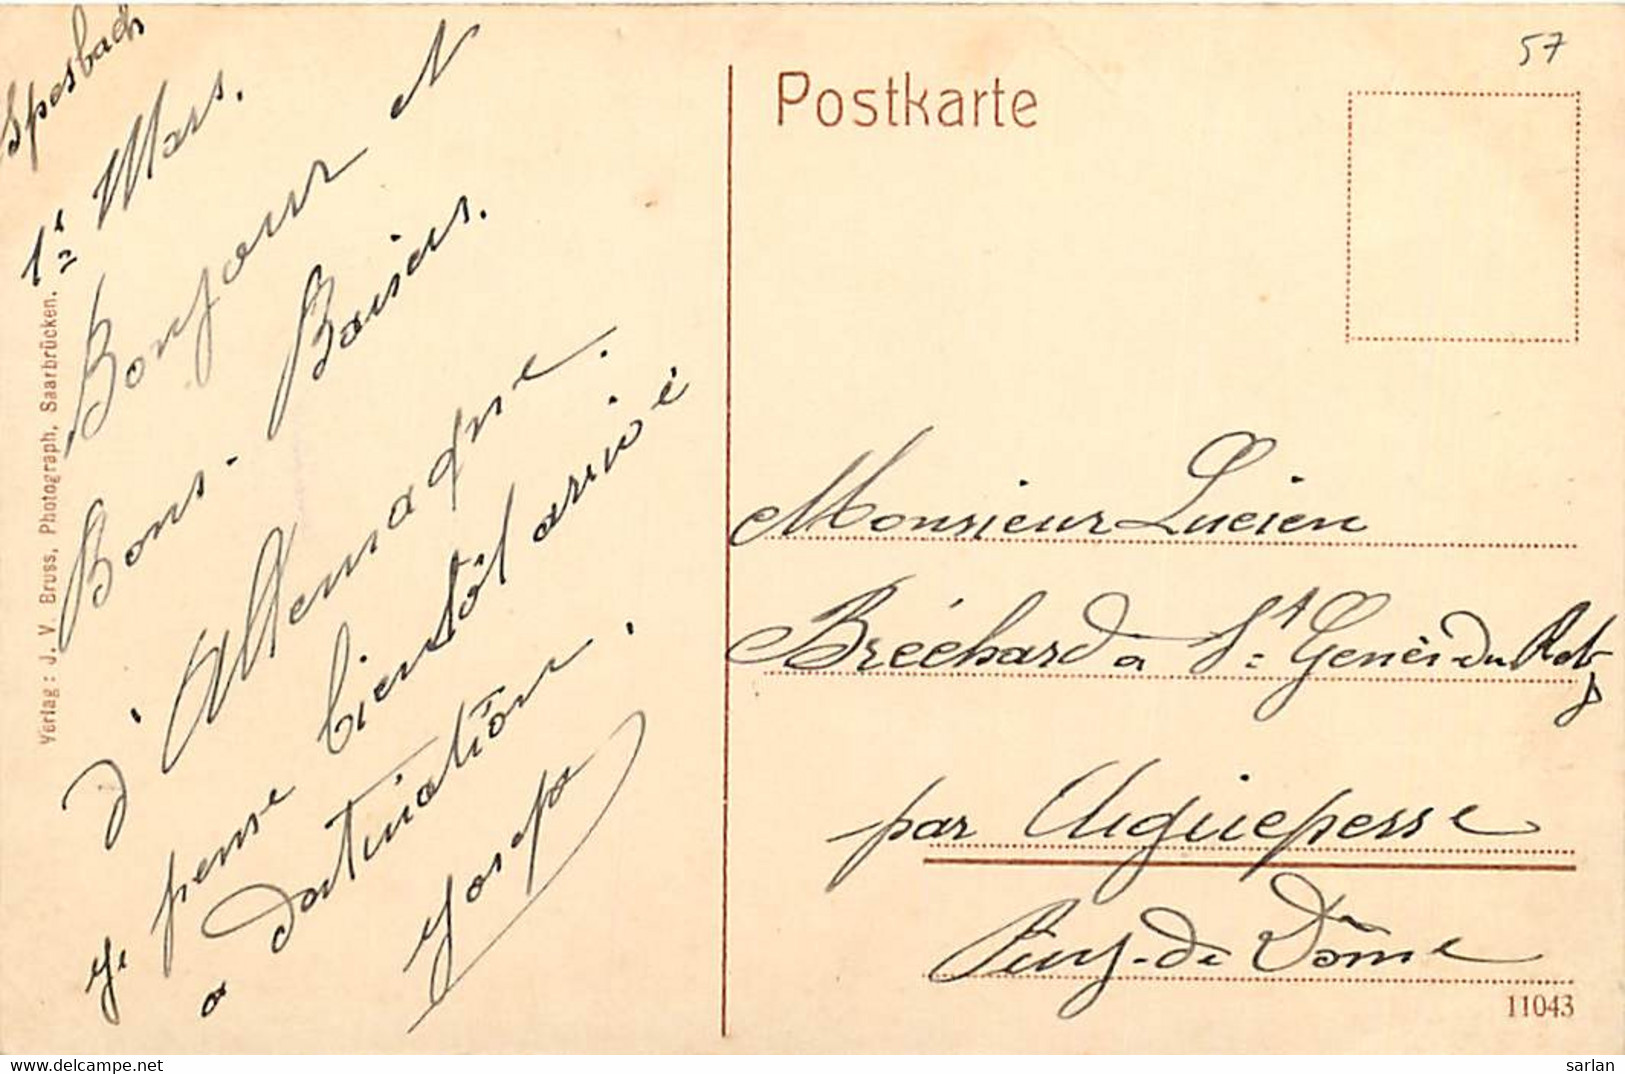 Spesbach
1er Mars.
Bonjour et
Bons - Baisers.
d'Allemagne.
Je pense bientôt arrivé
a destination.
Joseph
Verlag: J. V. Bruss, Photograph, Saarbrücken.
Postkarte
57
Monsieur Lucien
Bréchard a St Genès-du Retz
par Aigueperse
Puy-de Dôme
11043
sarlan